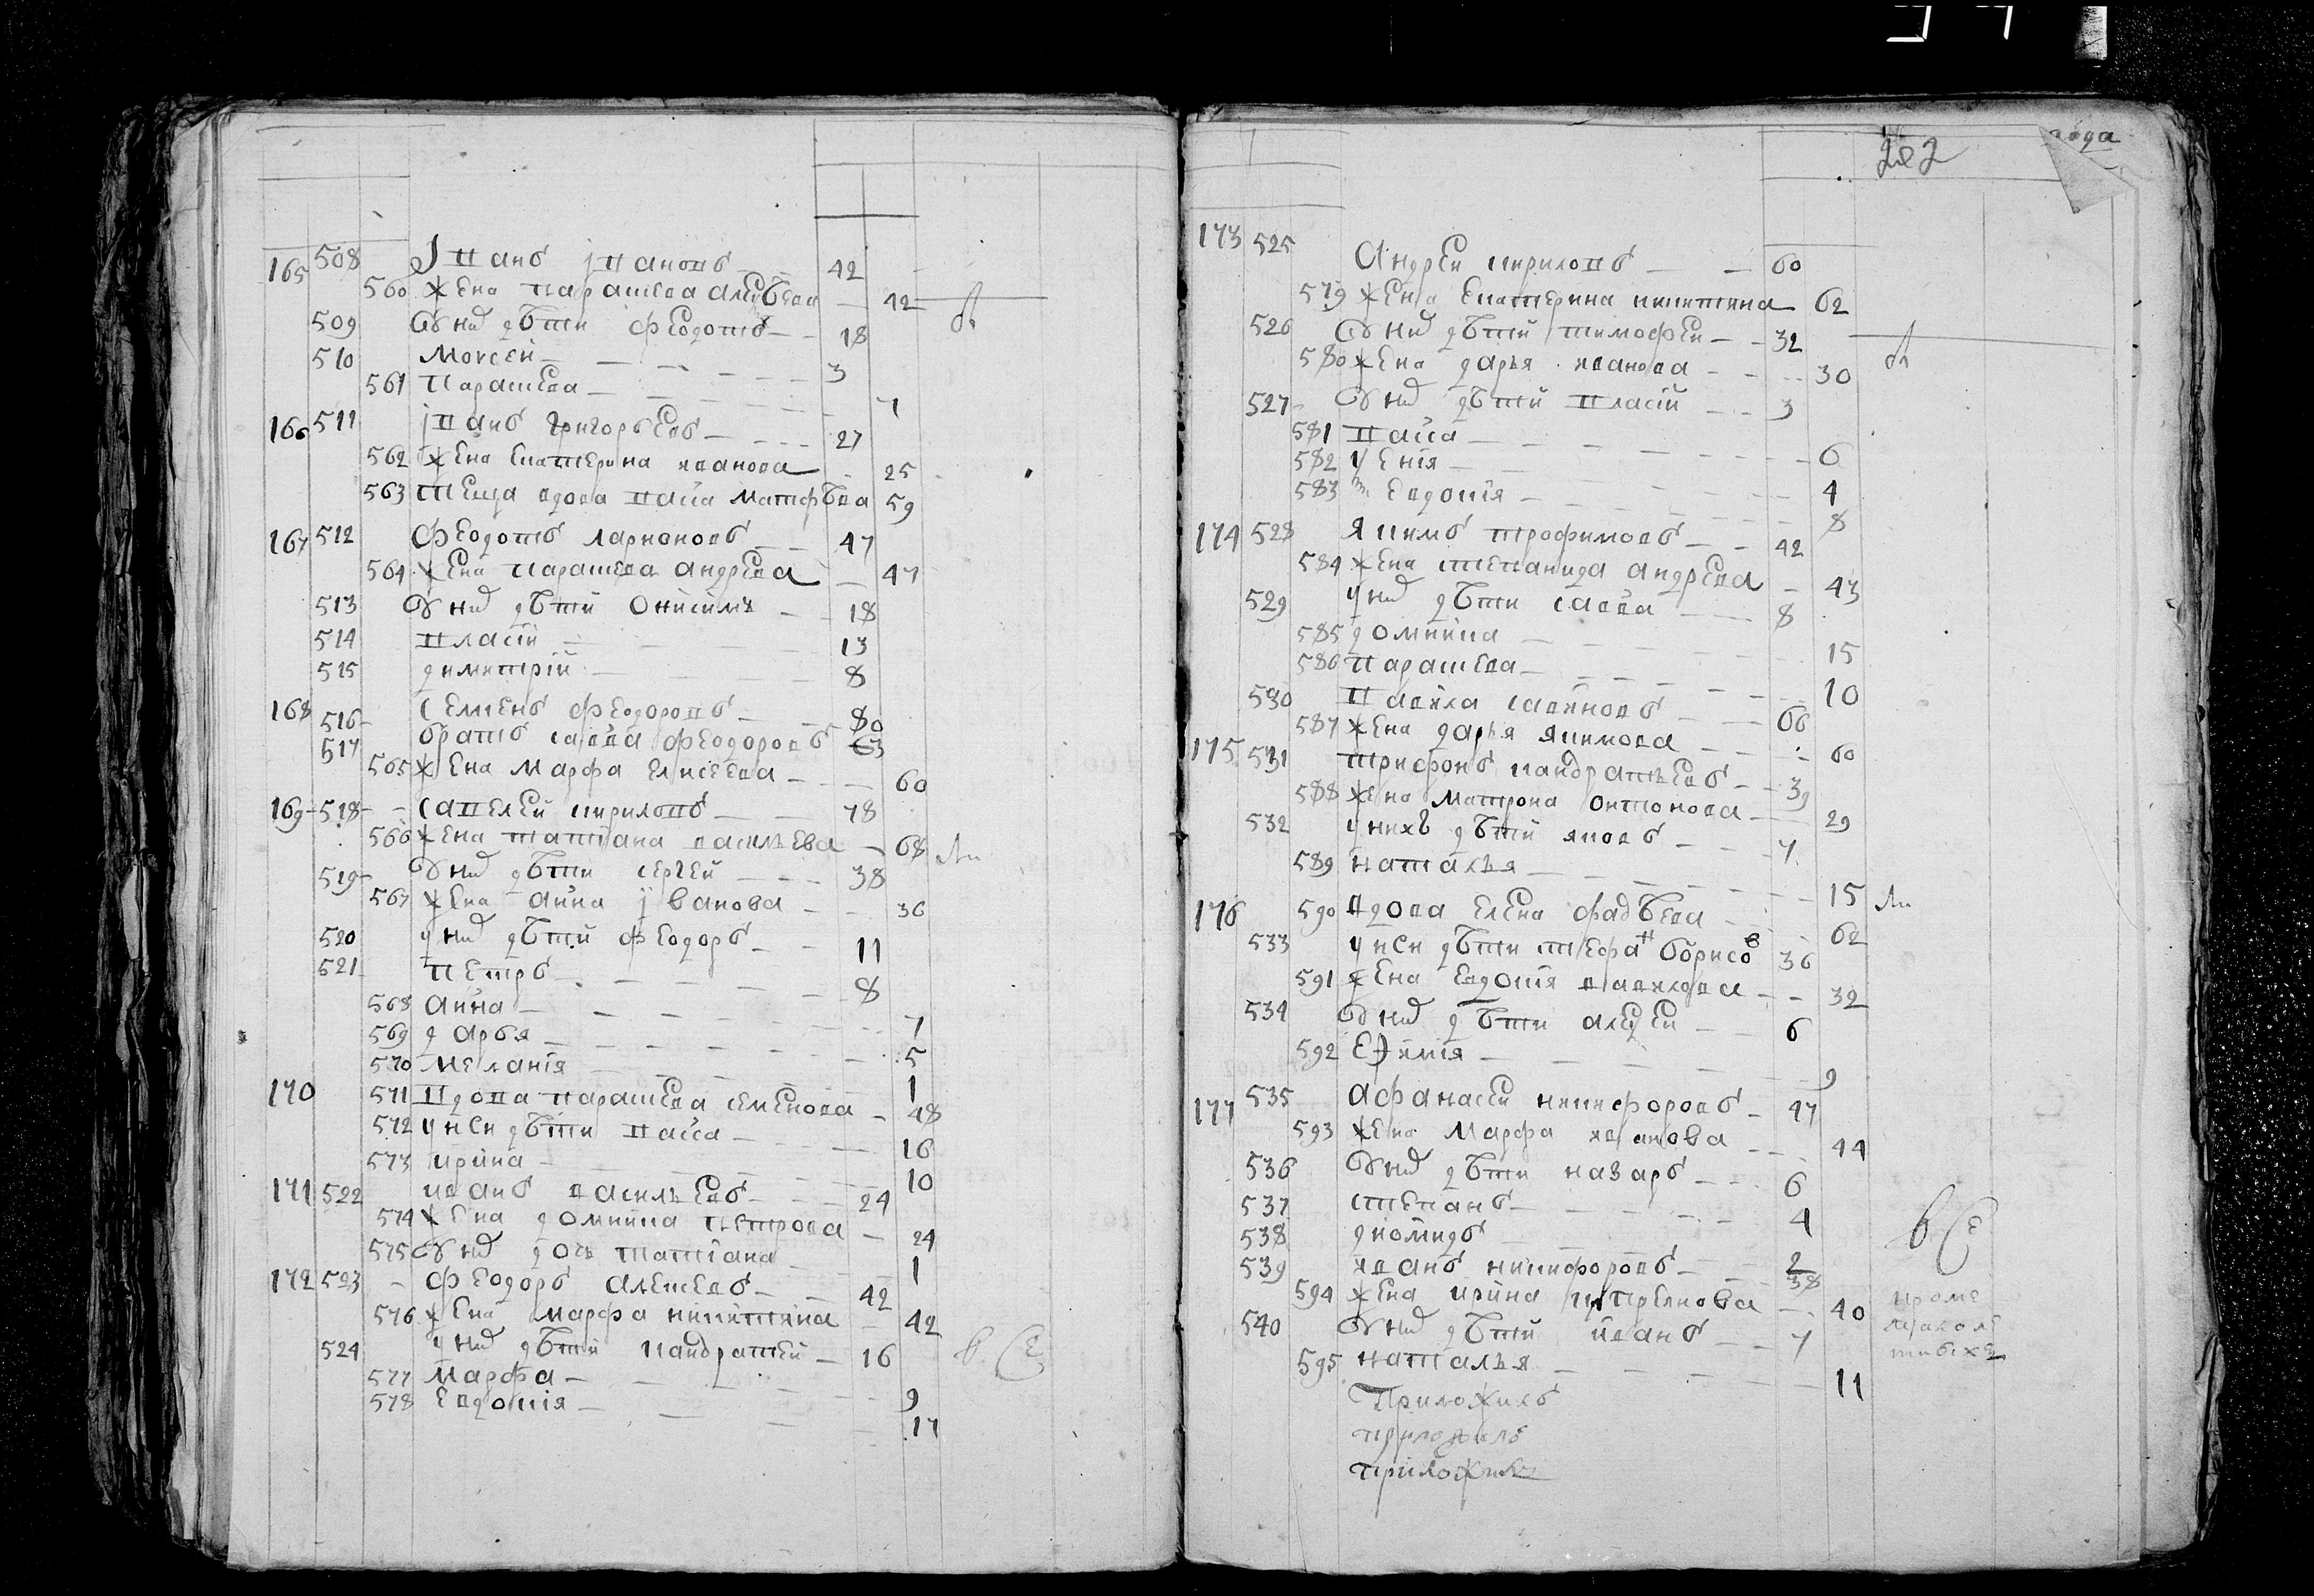 165 508 Іванъ Івановъ 42
560 жена Парасцева Алеѯѣева 42
509 У нихъ дѣти Феодотъ 18
510 Моисей 3
561 Парасцева 7
166 511 іванъ Григорьевъ 27
562 жена Екатерина иванова 25
563 теща вдова Васса Матфѣева 59
167 512 Феодотъ Ларионовъ 47
564 жена Парасцева Андреева 47
513 У нихъ дѣти Онисимъ 18
514 Власій 13
515 димитрій 8
168 516 Семенъ Феодоровъ 80
517 братъ савва феодоровъ 63
565 жена Марфа Елисеева 60
169 518 Савелей кириловъ 78
566 жена татіана васильева 68
519 У нихъ дѣти сергей 38
567 жена анна іванова 36
520 у нихъ дѣти Феодоръ 11
521 Петръ 8
568 анна 7
569 дарья 5
570 меланія 1
170 571 Вдова парасцева семенова 48
572 у неи дѣти Васса 16
573 ирина 10
171 522 иванъ васильевъ 24
574 жена домника петрова 24
575 У нихъ дочь татіана 1
172 523 Феодоръ алексеевъ 42
576 жена марфа никитина 42
524 у нихъ дѣти кандратей 16
577 Марфа 9
578 Евдокія 17
года
173 525 Андреи кириловъ 60
579 жена Екатерина никитина 62
526 У нихъ дѣтй тимофеи 32
580 жена дарья иванова 30
527 У нихъ дѣтй Власій 3
581 Васса 6
582 Ѯенія 4
583 Евдокія 8
174 528 Якимъ трофимовъ 42
584 жена степанида андреева 43
529 у нихъ дѣти савва 8
585 домника 15
586 Парасцева 10
530 Вавила савиновъ 66
587 жена дарья Якимова 60
175 531 трифонъ кандратьевъ 39
588 жена матрона онтонова 29
532 у нихъ дѣтй яковъ 7
589 наталья 15
176 590 вдова елена фадѣева 62
533 у неи дѣти стефан борисов 36
591 жена Евдокія вавилова 32
534 У нихъ дѣти алеѯеи 6
592 Еѳимія 9
177 535 Афанасеи никифоровъ 47
593 жена Марфа иванова 44
536 У нихъ дѣти назаръ 6
537 степанъ 4
538 диомидъ 2
539 иванъ никифоровъ 38
594 жена ирина куприянова 40
540 У нихъ дѣтй иванъ 7
595 наталья 11
кроме
Приложилъ
приложилъ
приложилъ